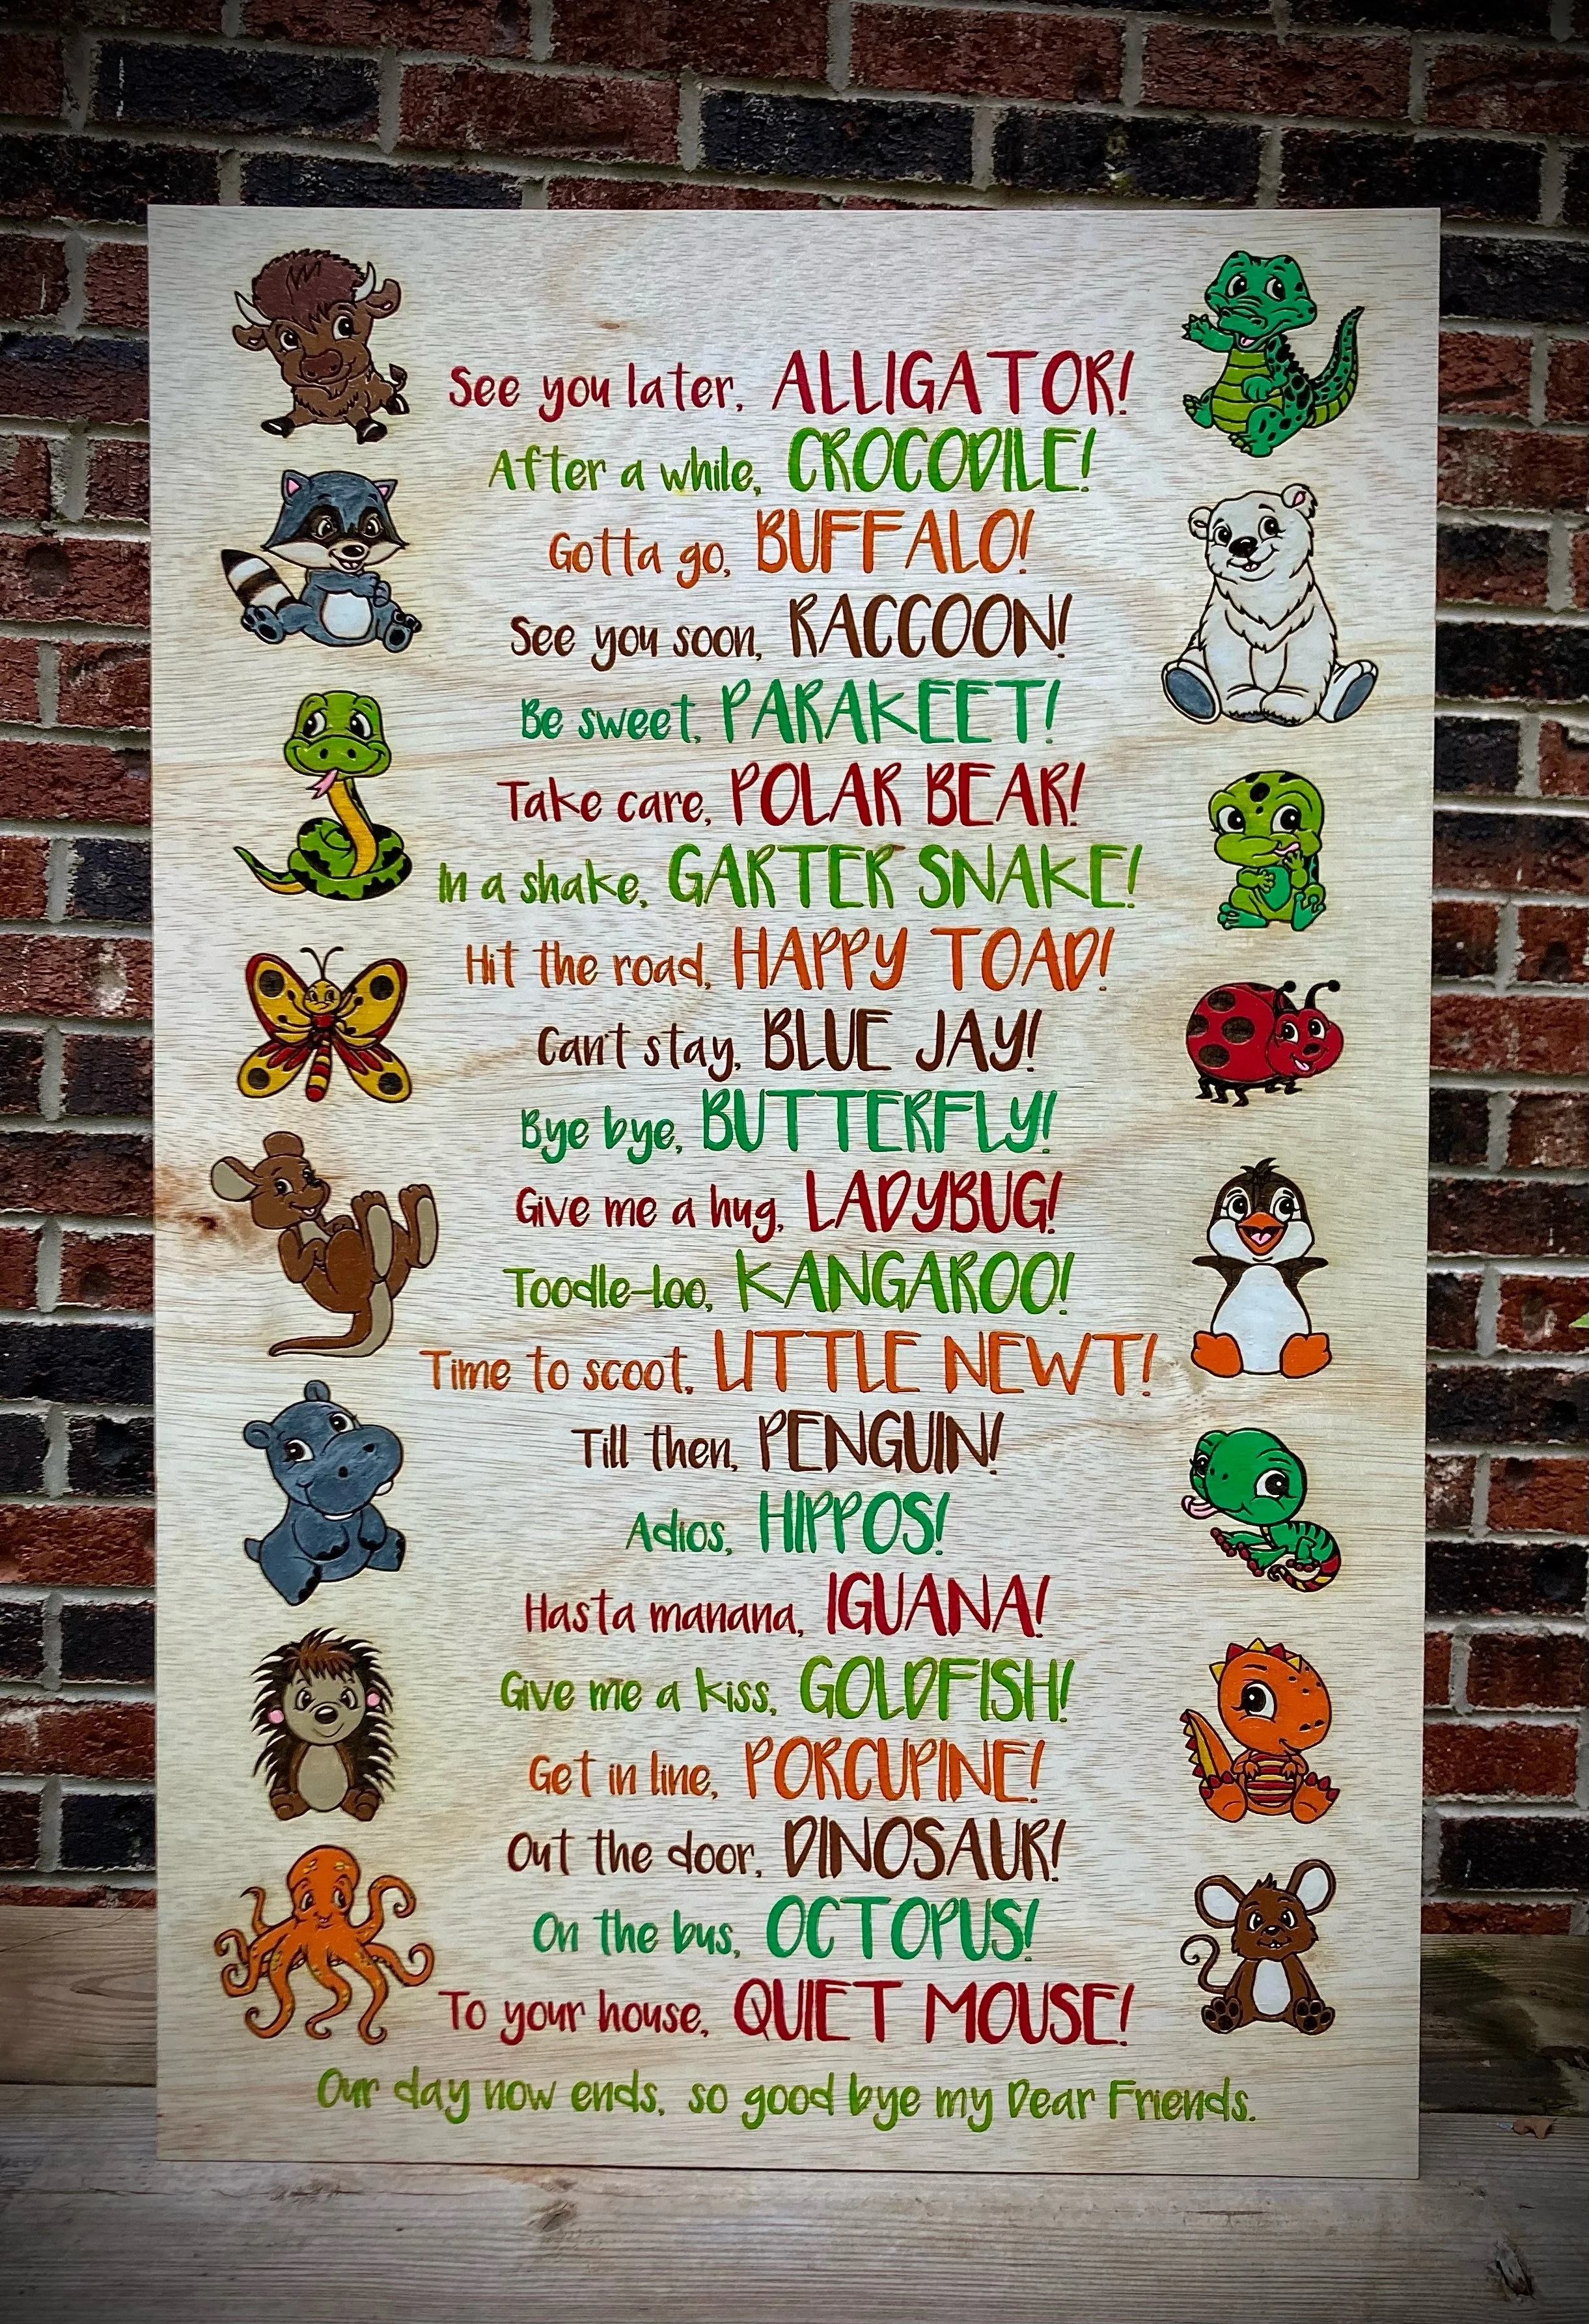 See you later, ALLIGATOR!
After a while, CROCODILE!
Gotta go, BUFFALO!
See you soon, RACCOON!
Be sweet, PARAKEET!
Take care, POLAR BEAR!
In a shake, GARTER SNAKE!
Hit the road, HAPPY TOAD!
Can't stay, BLUE JAY!
Bye bye, BUTTERFLY!
Give me a hug, LADYBUG!
Toodle-loo, KANGAROO!
Time to scoot, LITTLE NEWT!
Till then, PENGUIN!
Adios, HIPPOS!
Hasta manana, IGUANA!
Give me a kiss, GOLDFISH!
Get in line, PORCUPINE!
Out the door, DINOSAUR!
On the bus, OCTOPUS!
To your house, QUIET MOUSE!
Our day now ends, so good bye my Dear Friends.